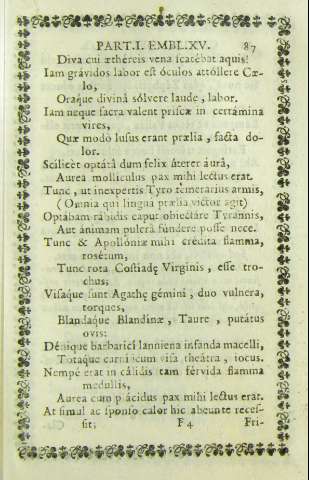 PART. I. EMBL. XV. 87
Diva cui æthereis vena scatébat aquis!
Iam grávidos labor est óculos attóllere Cæ-
lo,
Oráque divinâ sólvere laude, labor.
Iam neque sacra valent priscæ in certámina
vires,
Quæ modò lusus erant prælia, facta do-
lor.
Scílicet optátâ dum felix áterer áurâ,
Aurea mollículus pax mihi lectus erat.
Tunc, ut inexpertis Tyro temerarius armis,
(Omnia qui linguâ prælia victor agit)
Optabam rábidis caput obiectáre Tyrannis,
Aut ánimam pulcrâ fúndere posse nece.
Tunc & Apollóniæ mihi crédita flamma,
rosétum,
Tunc rota Costiadę Virginis, esse tro-
chus;
Visáque sunt Agathę gémini, duo vulnera,
torques,
Blandáque Blandinæ, Taure, putátus
ovis:
Dénique barbarici lanniena infanda macelli,
Totáque carníficum visa theátra, iocus.
Nempè erat in cálidis tam férvida flamma
medullis,
Aurea cùm plácidus pax mihi lectus erat.
At simul ac sponso calor hic abeunte recés-
sit;
F 4
Fri-